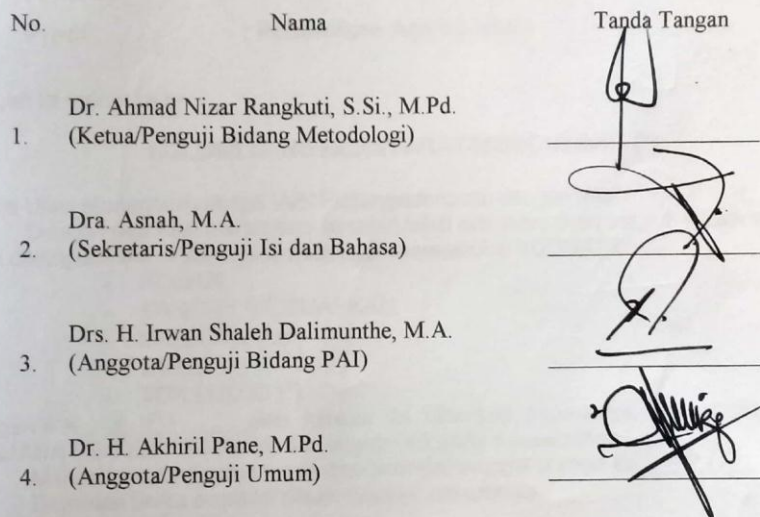 No. Nama Tanda Tangan
Dr. Ahmad Nizar Rangkuti, S.Si., M.Pd.
1. (Ketua/Penguji Bidang Metodologi)
Dra. Asnah, M.A.
2. (Sekretaris/Penguji Isi dan Bahasa)
Drs. H. Irwan Shaleh Dalimunthe, M.A.
3. (Anggota/Penguji Bidang PAI)
Dr. H. Akhiril Pane, M.Pd.
4. (Anggota/Penguji Umum)